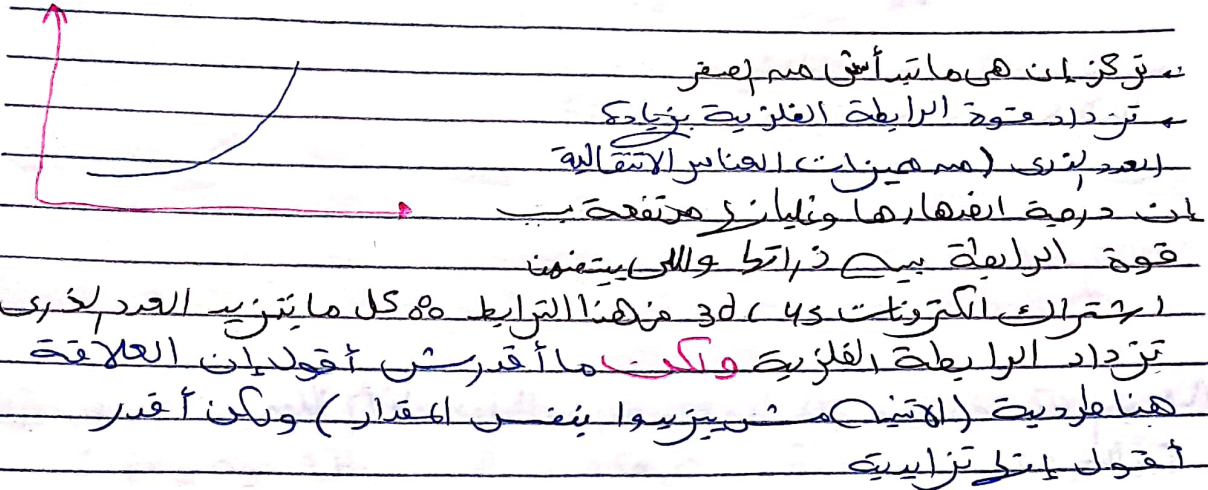 نركز إن هي ما تبدأش من الصفر
تزداد قوة الرابطة الفلزية بزيادة
العدد الذرى (من مميزات العناصر الانتقالية
إن درجة انصهارها وغليانها مرتفعة بسبب
قوة الرابطة بين ذراتها واللى بيتضمن
اشتراك الكترونات 4s ، 3d فى هذا الترابط ∴ كل ما تتزيد العدد الذرى
تزداد الرابطة الفلزية ولكن ما أقدرش أقول إن العلاقة
هنا طردية (الاتنين مش بيزيدوا بنفس المقدار) ولكن أقدر
أقول إنها تزايدية